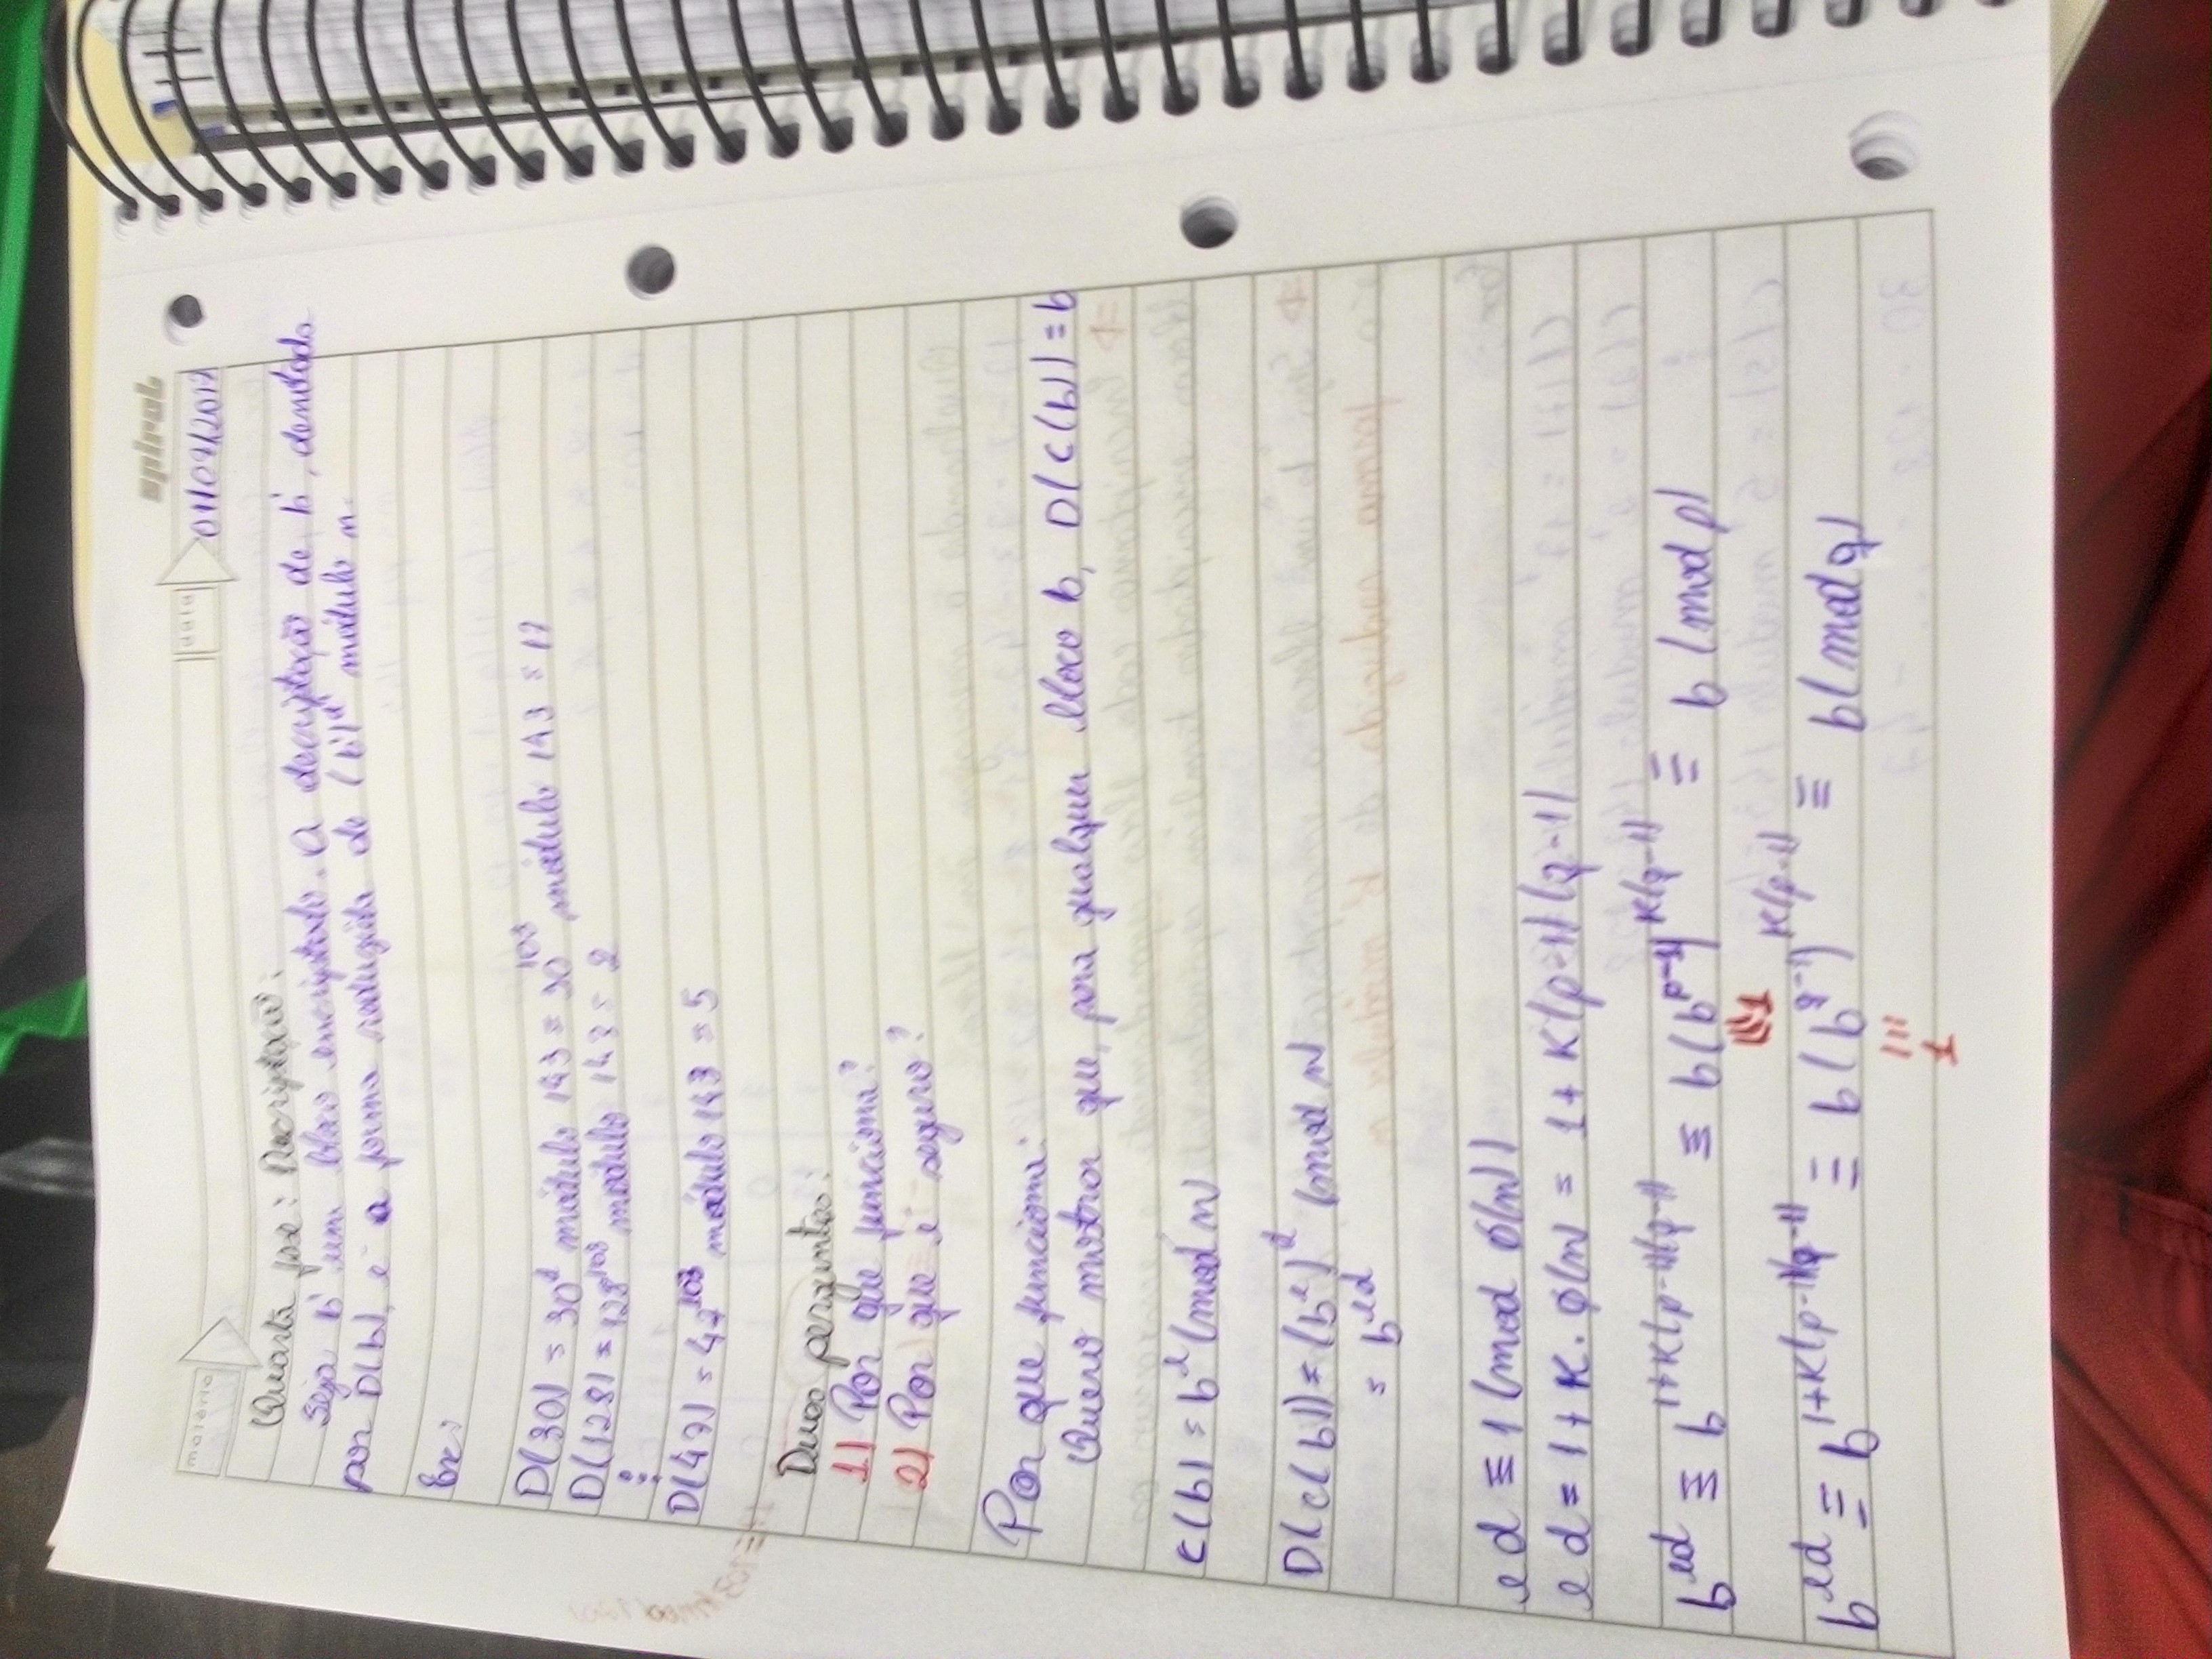 spiral
matéria
data
01/09/2017
Quarta fase: Decriptação:
Seja b' um bloco encriptado. A decriptação de b', denotada
por D(b), é a forma reduzida de (b')^d módulo n.
Ex:
D(30) = 30^d módulo 143 = 30^103 módulo 143 = 17
D(128) = 128^103 módulo 143 = 2
⋮
D(47) = 47^103 módulo 143 = 5
Duas perguntas:
1) Por que funciona?
2) Por que é seguro?
Por que funciona:
Quero mostrar que, para qualquer bloco b, D(C(b)) = b
C(b) = b^e (mod n)
D(C(b)) = (b^e)^d (mod n)
= b^ed
ed ≡ 1 (mod ϕ(n))
ed = 1 + K. ϕ(n) = 1 + K(p-1)(q-1)
b^ed ≡ b^1+K(p-1)(q-1) ≡ b(b^p-1)^K(q-1) ≡ b (mod p)
≡ 1
b^ed ≡ b^1+K(p-1)(q-1) ≡ b(b^q-1)^K(p-1) ≡ b(mod q)
≡
1